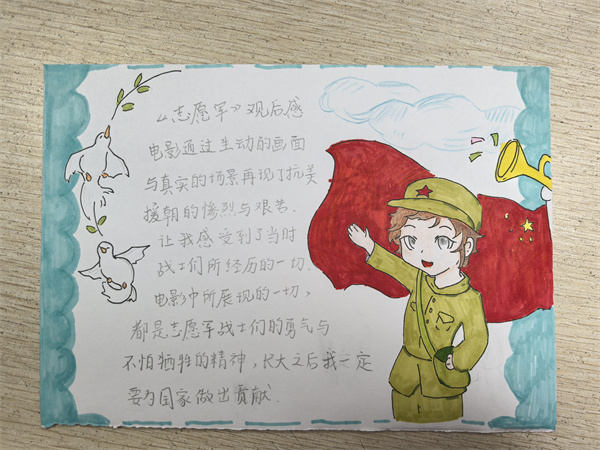 《志愿军》观后感
电影通过生动的画面
与真实的场景再现了抗美
援朝的惨烈与艰苦.
让我感受到了当时
战士们所经历的一切.
电影中所展现的一切,
都是志愿军战士们的勇气与
不怕牺牲的精神,长大之后我一定
要为国家做出贡献.